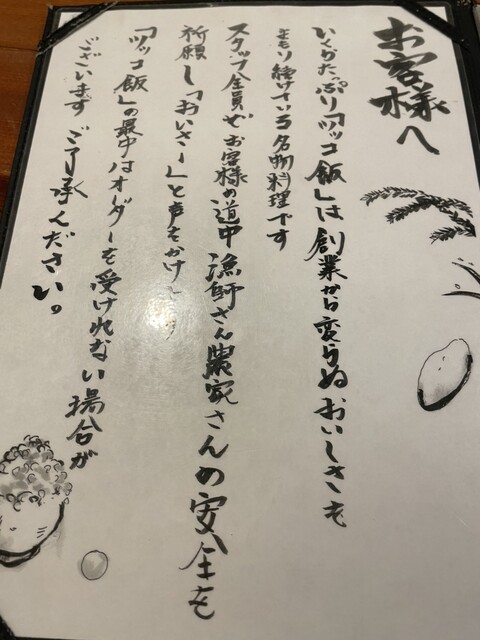 お客様へ
いくらたっぷり「ツッコ飯」は創業から変らぬおいしさを
まもり続けている名物料理です
スタッフ全員でお客様の道中漁師さん農家さんの安全を
祈願し「おいさー」と声をかけ
「ツッコ飯」の最中はオーダーを受けれない場合が
ございます ご了承ください。